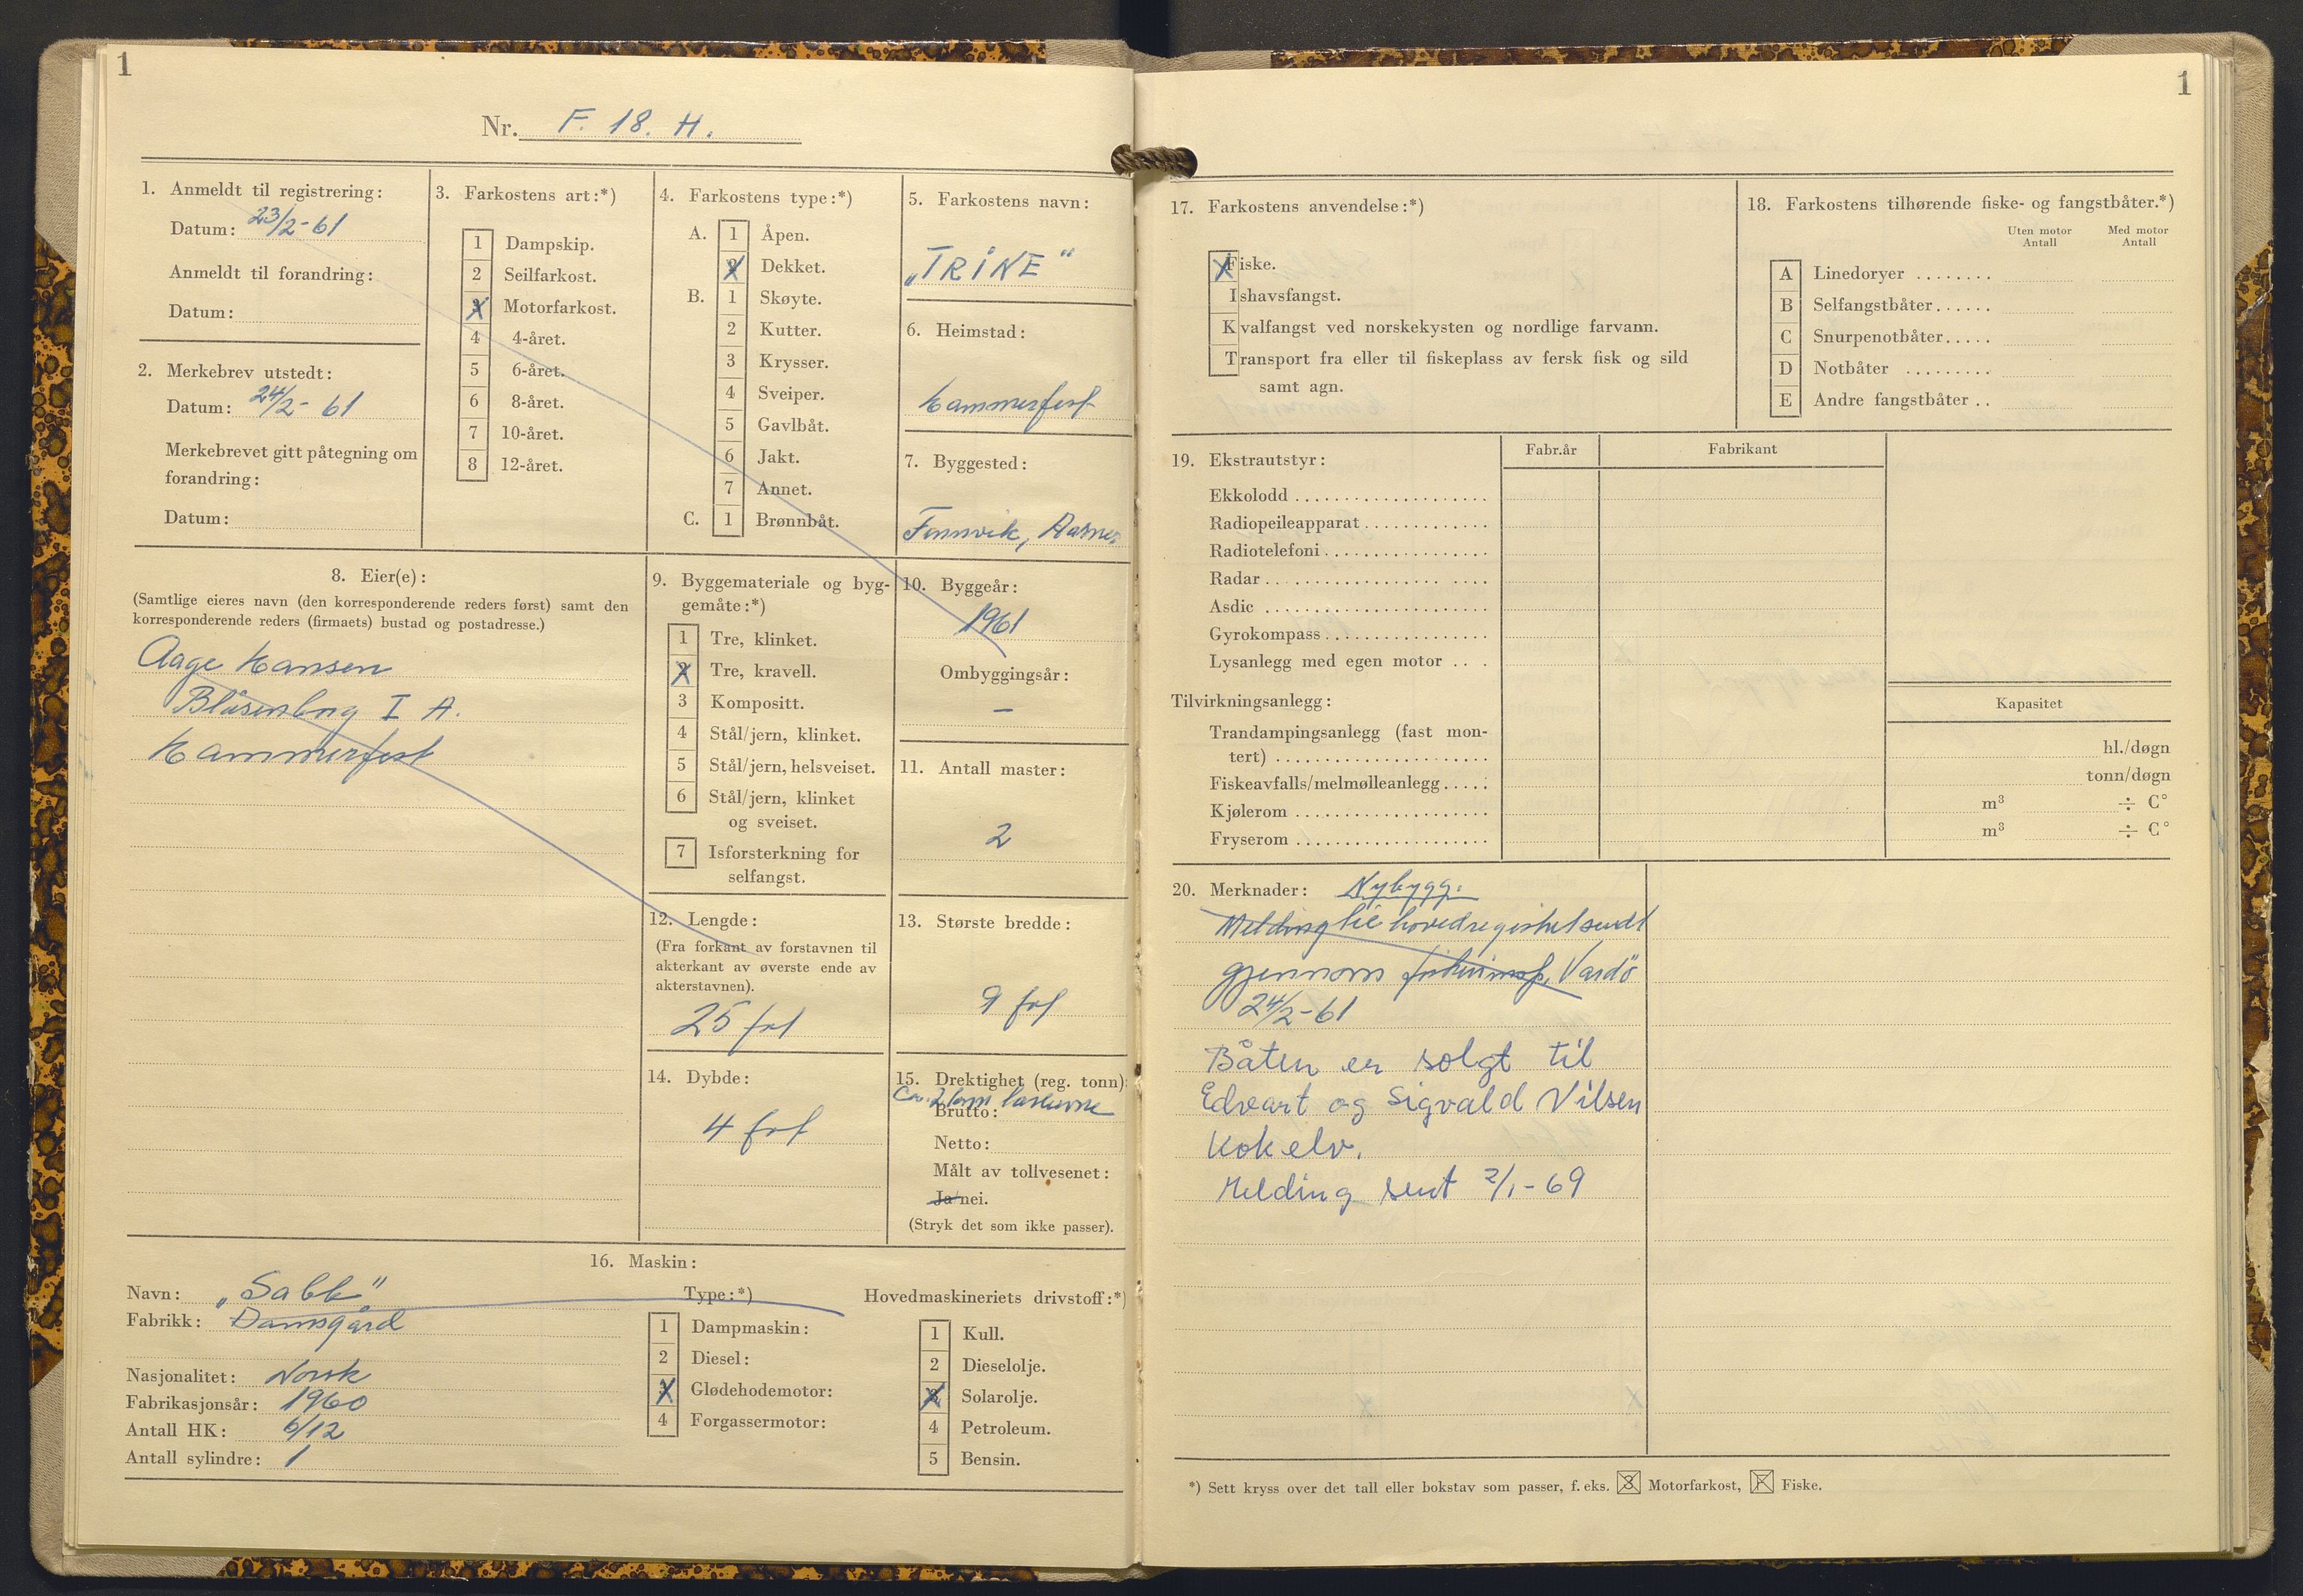 1
Nr. F. 18. H.
1. Anmeldt til registrering:
Datum: 23/2-61
Anmeldt til forandring:
Datum:
2. Merkebrev utstedt:
Datum: 24/2-61
Merkebrevet gitt påtegning om
forandring:
Datum:
3. Farkostens art:*)
1 Dampskip.
2 Seilfarkost.
3 Motorfarkost.
4 4-året.
5 6-året.
6 8-året.
7 10-året.
8 12-året.
4. Farkostens type:*)
A. 1 Åpen.
2 Dekket.
B. 1 Skøyte.
2 Kutter.
3 Krysser.
4 Sveiper.
5 Gavlbåt.
6 Jakt.
7 Annet.
C. 1 Brønnbåt.
5. Farkostens navn:
„TRINE"
6. Heimstad:
Hammerfest
7. Byggested:
Finnvik,
8. Eier(e):
(Samtlige eieres navn (den korresponderende reders først) samt den
korresponderende reders (firmaets) bustad og postadresse.)
Aage Hansen
Blåsenborg I A.
Hammerfest
9. Byggemateriale og byg-
gemåte:*)
1 Tre, klinket.
2 Tre, kravell.
3 Kompositt.
4 Stål/jern, klinket.
5 Stål/jern, helsveiset.
6 Stål/jern, klinket
og sveiset.
7 Isforsterkning for
selfangst.
10. Byggeår:
1961
Ombyggingsår:
–
11. Antall master:
2
12. Lengde:
(Fra forkant av forstavnen til
akterkant av øverste ende av
akterstavnen).
25 fot
13. Største bredde:
9 fot
14. Dybde:
4 fot
15. Drektighet (reg. tonn):
Ca. 2 tonn lasteevne
Brutto:
Netto:
Målt av tollvesenet:
Ja/nei.
(Stryk det som ikke passer).
16. Maskin:
Navn: „Sabb"
Fabrikk: Damsgård
Nasjonalitet: Norsk
Fabrikasjonsår: 1960
Antall HK: 6/12
Antall sylindre: 1
Type:*)
1 Dampmaskin:
2 Diesel:
3 Glødehodemotor:
4 Forgassermotor:
Hovedmaskineriets drivstoff:*)
1 Kull.
2 Dieselolje.
3 Solarolje.
4 Petroleum.
5 Bensin.
1
17. Farkostens anvendelse:*)
Fiske.
Ishavsfangst.
Kvalfangst ved norskekysten og nordlige farvann.
Transport fra eller til fiskeplass av fersk fisk og sild
samt agn.
18. Farkostens tilhørende fiske- og fangstbåter.*)
Uten motor Med motor
Antall Antall
A Linedoryer
B Selfangstbåter
C Snurpenotbåter
D Notbåter
E Andre fangstbåter
19. Ekstrautstyr:
Fabr.år Fabrikant
Ekkolodd
Radiopeileapparat
Radiotelefoni
Radar
Asdic
Gyrokompass
Lysanlegg med egen motor
Tilvirkningsanlegg:
Kapasitet
Trandampingsanlegg (fast mon-
tert) hl./døgn
Fiskeavfalls/melmølleanlegg tonn/døgn
Kjølerom m³ ÷ C°
Fryserom m³ ÷ C°
20. Merknader: Nybygg.
Melding til hovedregistret sendt
gjennom Vardö
24/2-61
Båten er solgt til
Edvart og Sigvald Nilsen
Kokelv.
Melding sent 2/1-69
*) Sett kryss over det tall eller bokstav som passer, f. eks. 3 Motorfarkost, F Fiske.